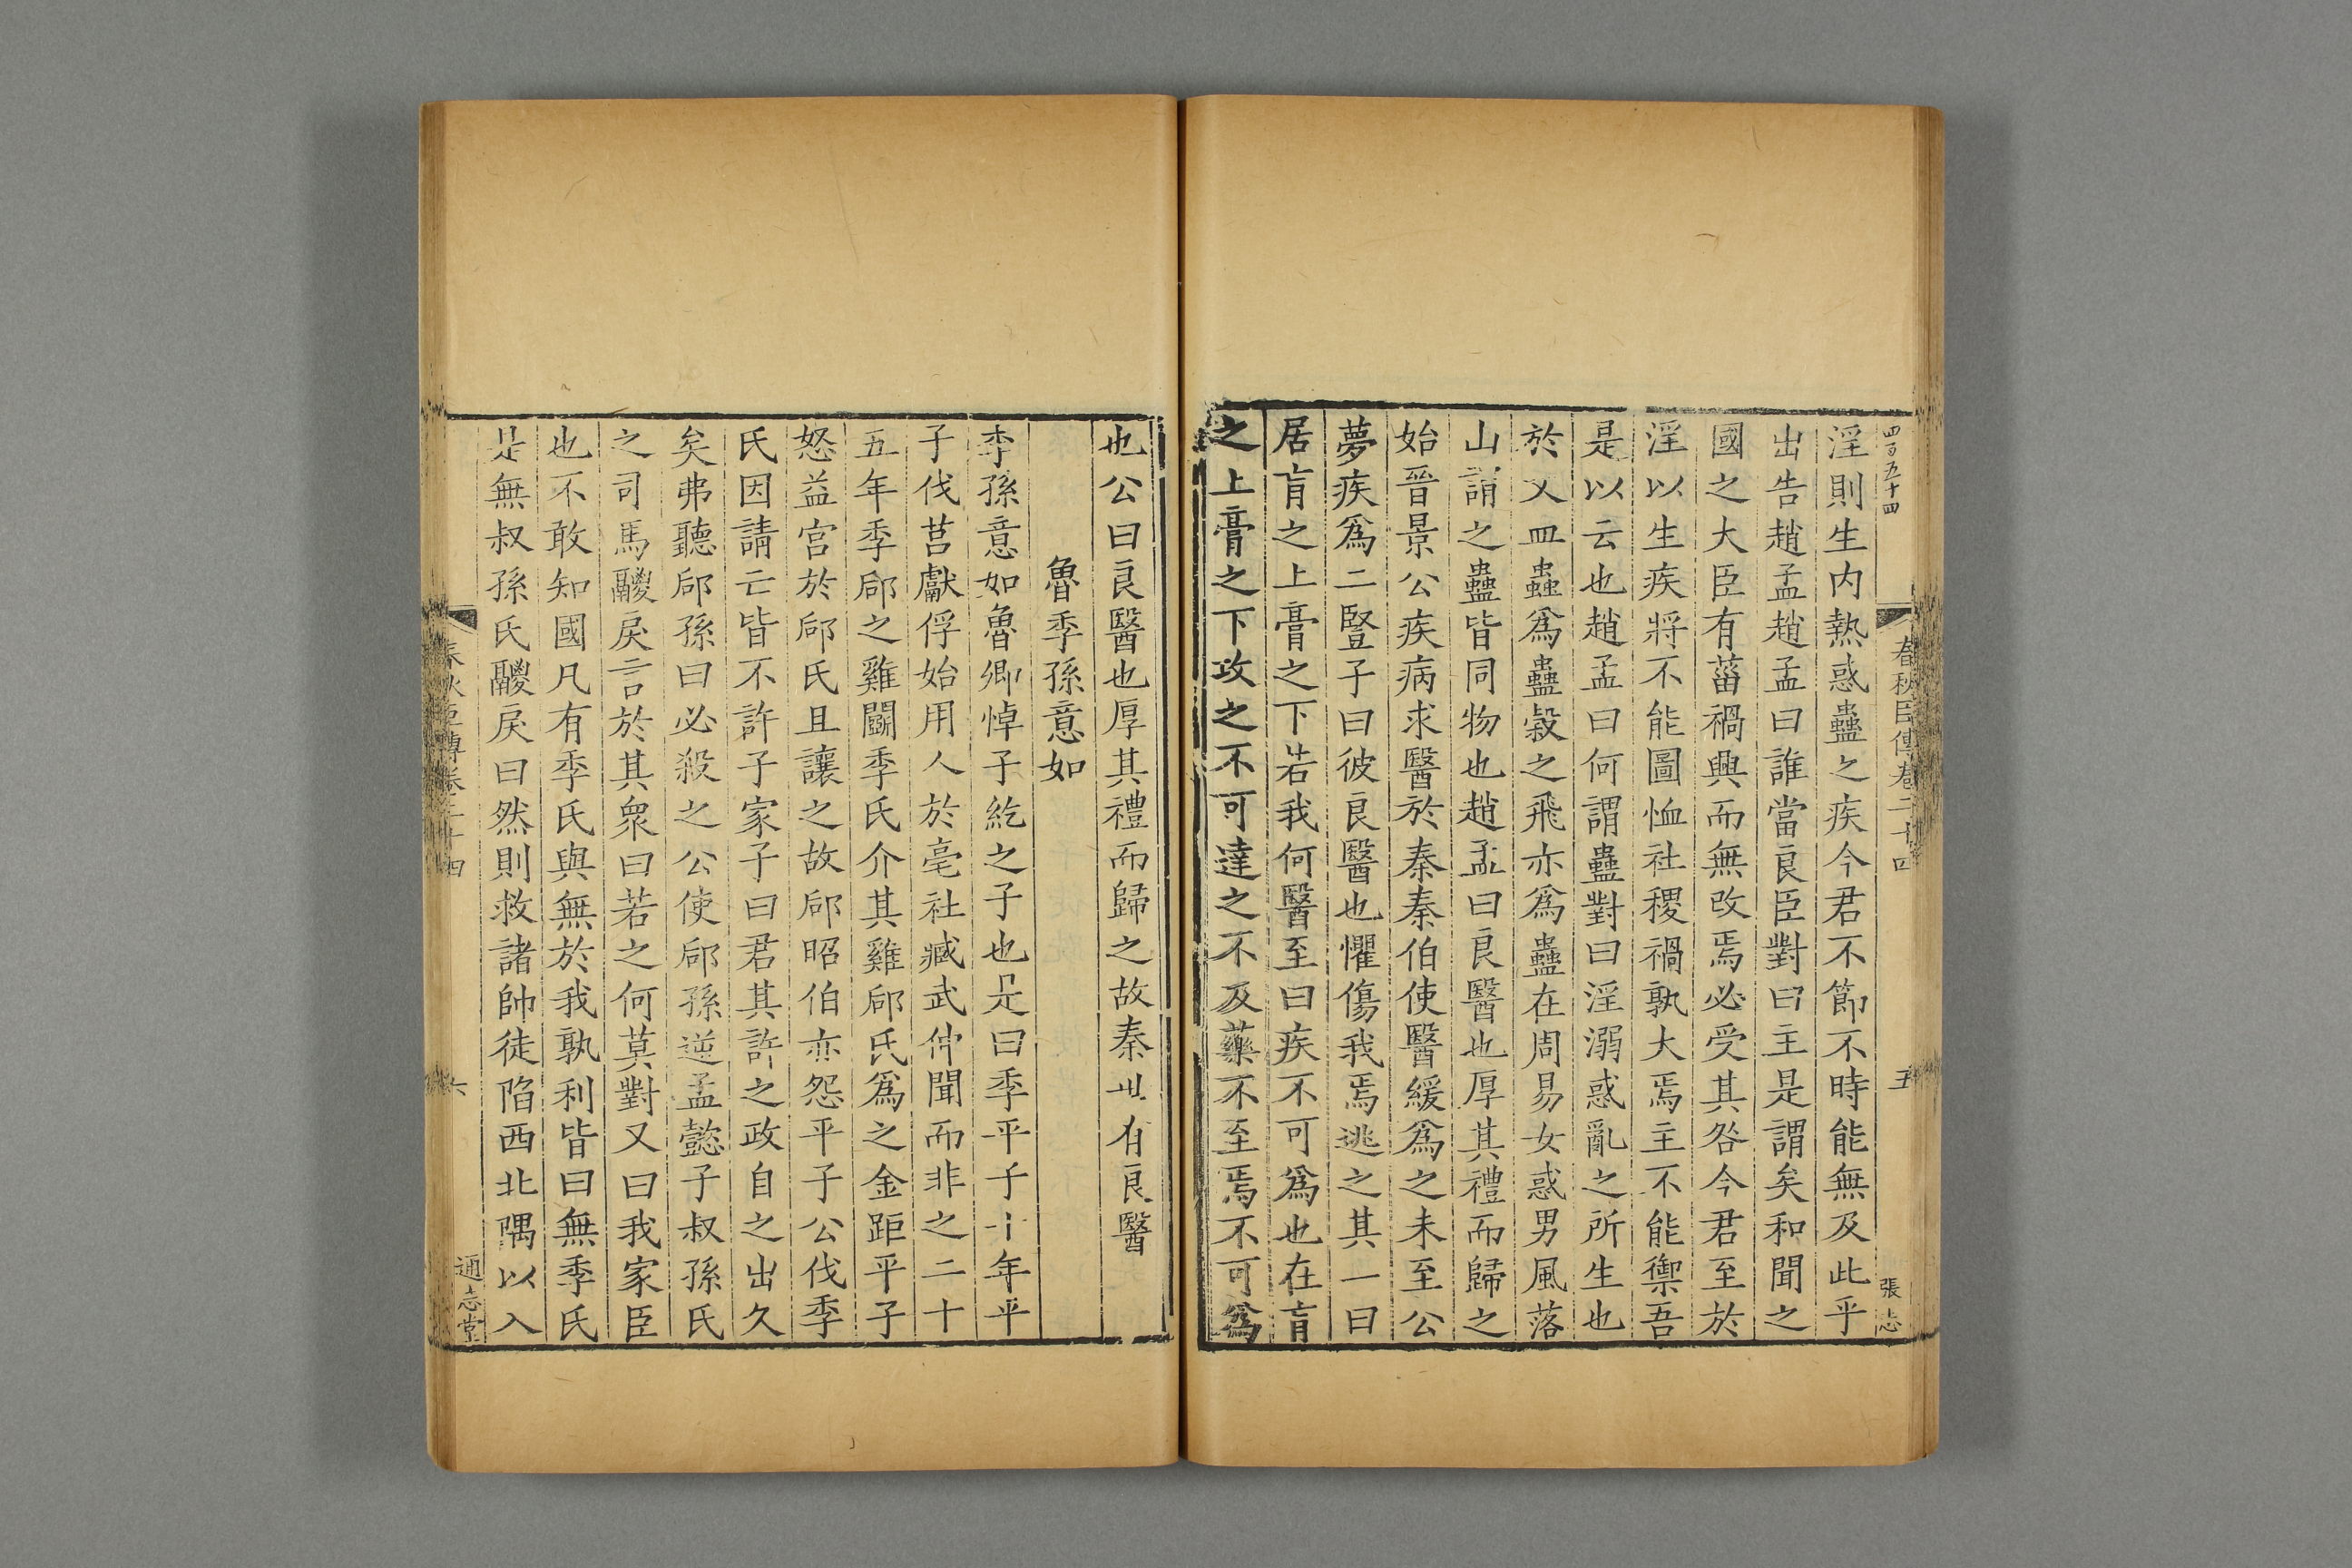 四百五十四
春秋臣傳卷二十四
五
張志
淫則生内熱惑蠱之疾今君不節不時能無及此乎
出告趙孟趙孟曰誰當良臣對曰主是謂矣和聞之
國之大臣有菑禍興而無改焉必受其咎今君至於
淫以生疾將不能圖恤社稷禍孰大焉主不能禦吾
是以云也趙孟曰何謂蠱對曰淫溺惑亂之所生也
於文皿蟲爲蠱榖之飛亦爲蠱在周易女惑男風落
山謂之蠱皆同物也趙孟曰良醫也厚其禮而歸之
始晉景公疾病求醫於秦秦伯使醫緩爲之未至公
夢疾爲二豎子曰彼良醫也懼傷我焉逃之其一曰
居肓之上膏之下若我何醫至曰疾不可爲也在肓
之上膏之下攻之不可達之不及藥不至焉不可爲
也公曰良醫也厚其禮而歸之故秦世有良醫
魯季孫意如
季孫意如魯卿悼子紇之子也是曰季平子十年平
子伐莒獻俘始用人於亳社臧武仲聞而非之二十
五年季郈之雞鬭季氏介其雞郈氏爲之金距平子
怒益宫於郈氏且讓之故郈昭伯亦怨平子公伐季
氏因請亡皆不許子家子曰君其許之政自之出久
矣弗聽郈孫曰必殺之公使郈孫逆孟懿子叔孫氏
之司馬鬷戾言於其衆曰若之何莫對又曰我家臣
也不敢知國凡有季氏與無於我孰利皆曰無季氏
是無叔孫氏鬷戾曰然則救諸帥徒陷西北隅以入
春秋臣傳卷二十四
六
通志堂